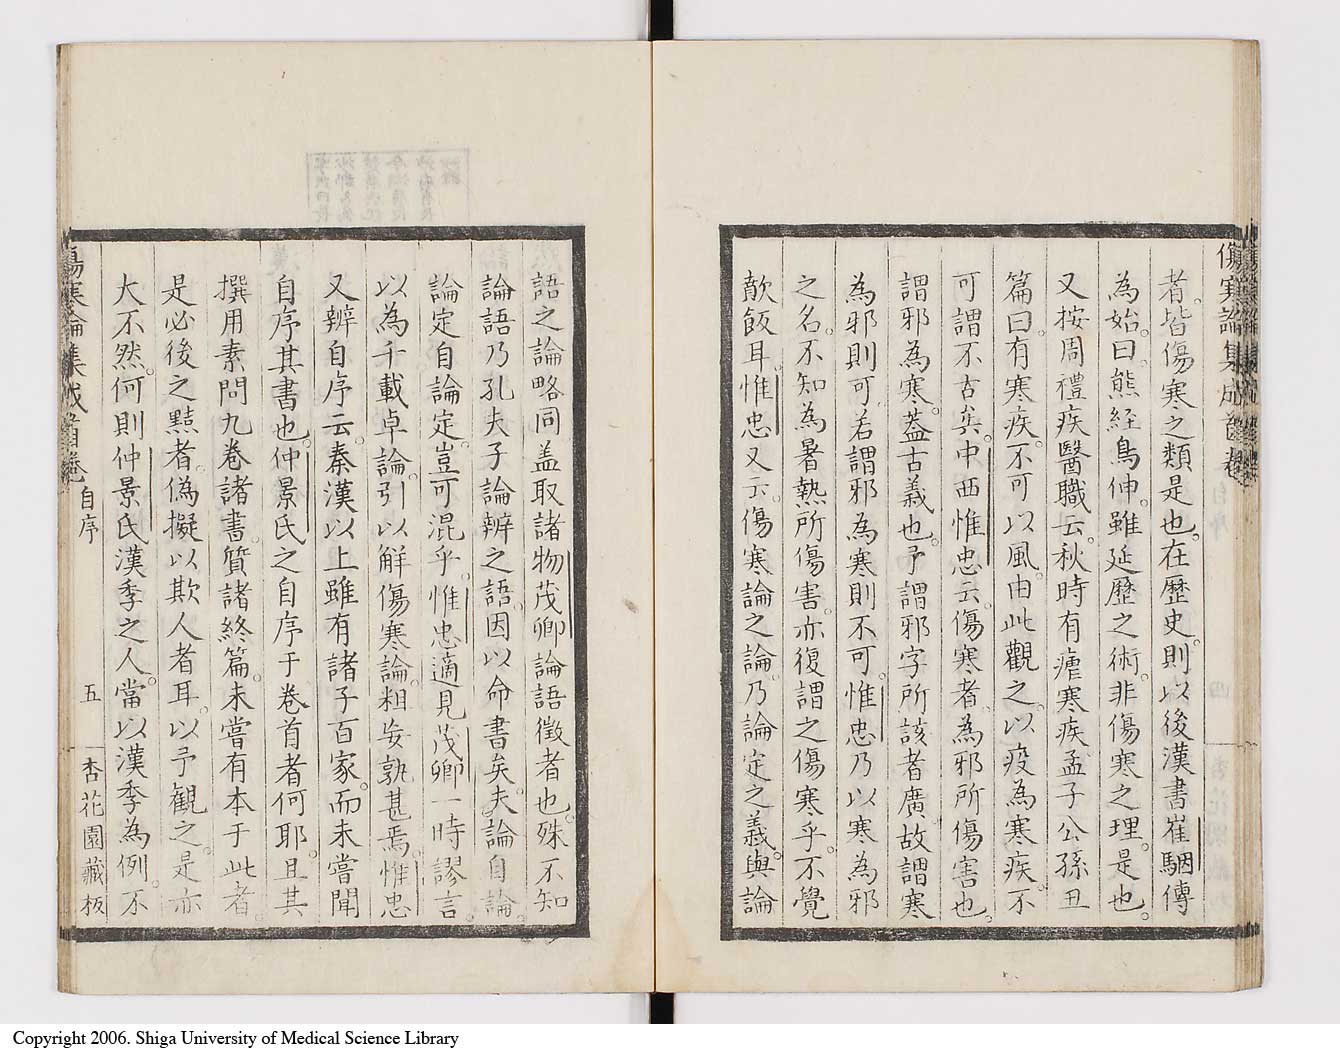 傷寒論集成首卷
者。皆傷寒之類是也。在歷史。則以後漢書崔駰傳
為始。曰。熊經鳥伸。雖延歷之術。非傷寒之理。是也。
又按周禮疾醫職云。秋時有瘧寒疾孟子公孫丑
篇曰。有寒疾。不可以風。由此觀之。以疫為寒疾。不
可謂不古矣。中西惟忠云。傷寒者。為邪所傷害也。
謂邪為寒。蓋古義也。予謂邪字所該者廣。故謂寒
為邪則可。若謂邪為寒則不可。惟忠乃以寒為邪
之名。不知為暑熱所傷害。亦復謂之傷寒乎。不覺
歕飯耳。惟忠又云。傷寒論之論。乃論定之義。與論
語之論略同盖取諸物茂卿論語徵者也。殊不知
論語乃孔夫子論辨之語。因以命書矣。夫論自論。
論定自論定。豈可混乎。惟忠適見茂卿一時謬言。
以為千載卓論。引以解傷寒論。粗妄孰甚焉。惟忠
又辨自序云。秦漢以上雖有諸子百家。而未嘗聞
自序其書也。仲景氏之自序于卷首者何耶。且其
撰用素問九卷諸書。質諸終篇。未嘗有本于此者。
是必後之黠者。偽擬以欺人者耳。以予観之。是亦
大不然。何則仲景氏漢季之人。當以漢季為例。不
傷寒論集成首卷 自序 五 杏花園藏板
Copyright 2006. Shiga University of Medical Science Library